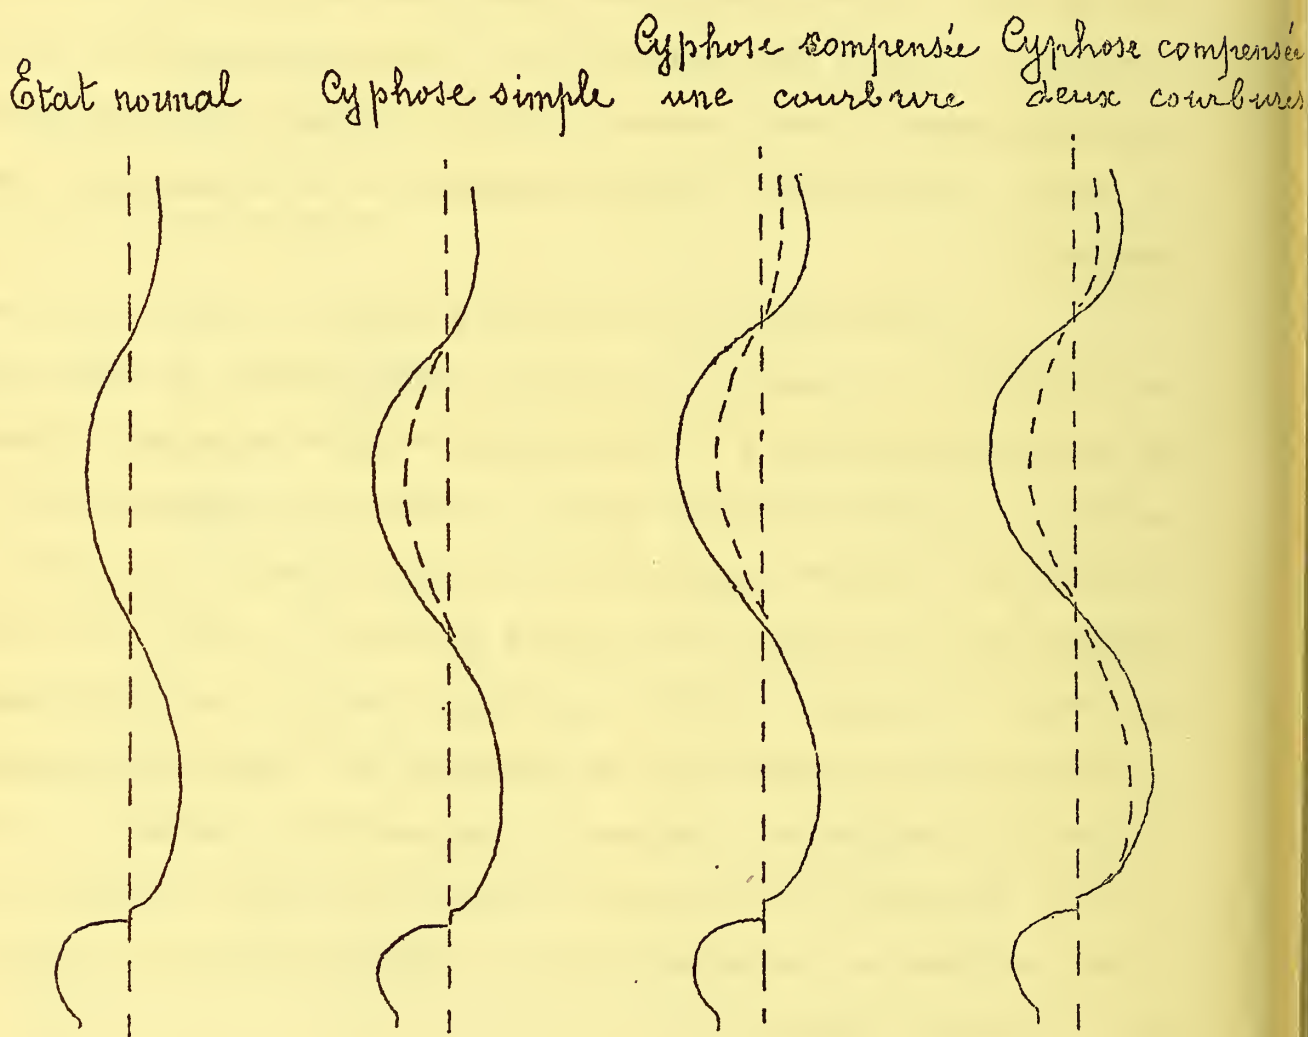 État normal
Cyphose simple
Cyphose compensée
une courbure
Cyphose compensée
deux courbures